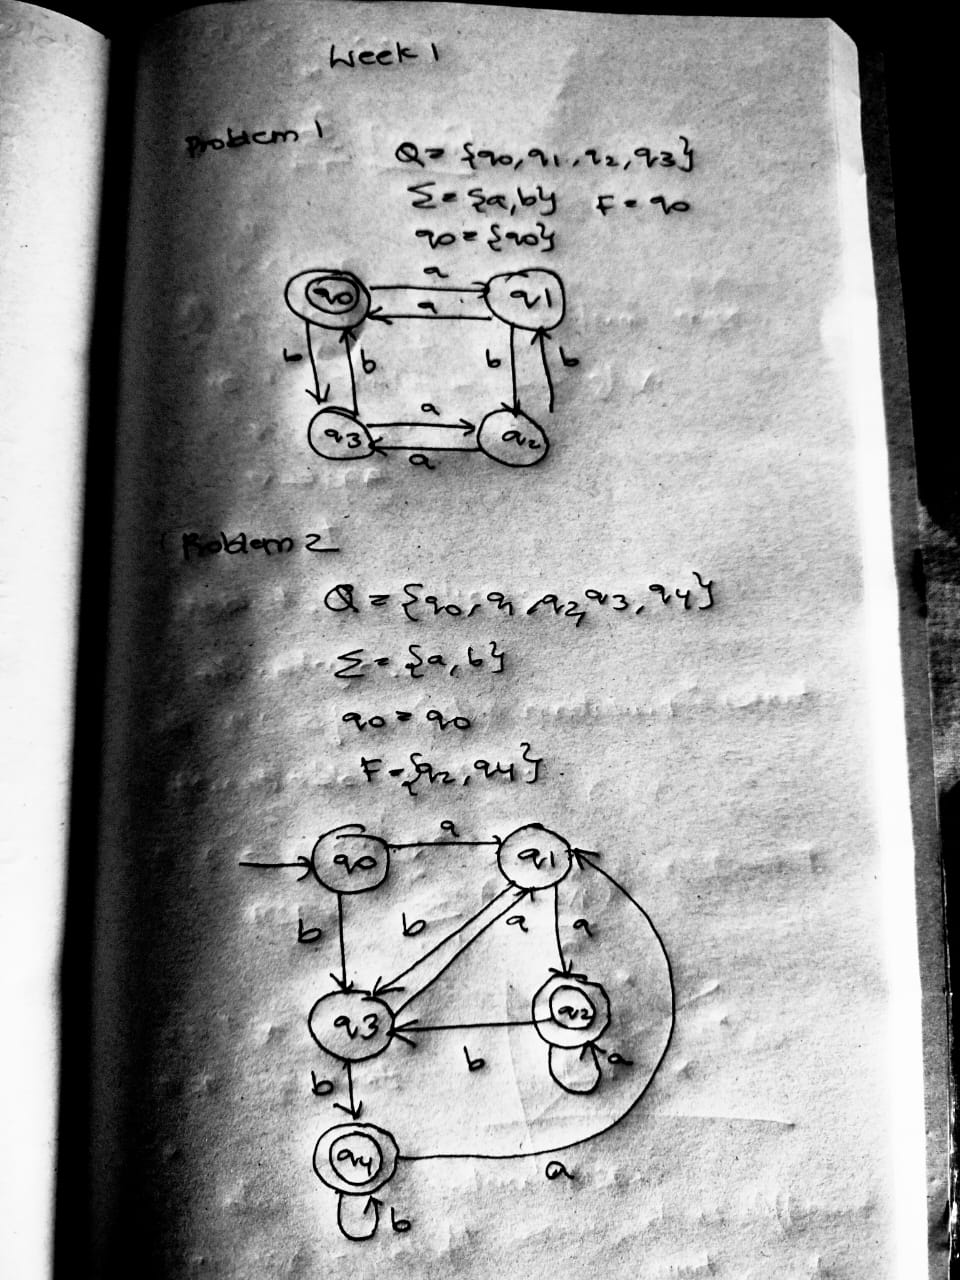 Week 1
Problem 1
Q = {q0, q1, q2, q3}
Σ = {a, b} F = q0
q0 = {q0}
a
q0 q1
a
b b b b
a
q3 q2
a
Problem 2
Q = {q0, q1, q2, q3, q4}
Σ = {a, b}
q0 = q0
F = {q2, q4}
a
q0 q1
b b a a
q3 q2
b a
b
q4
a
b